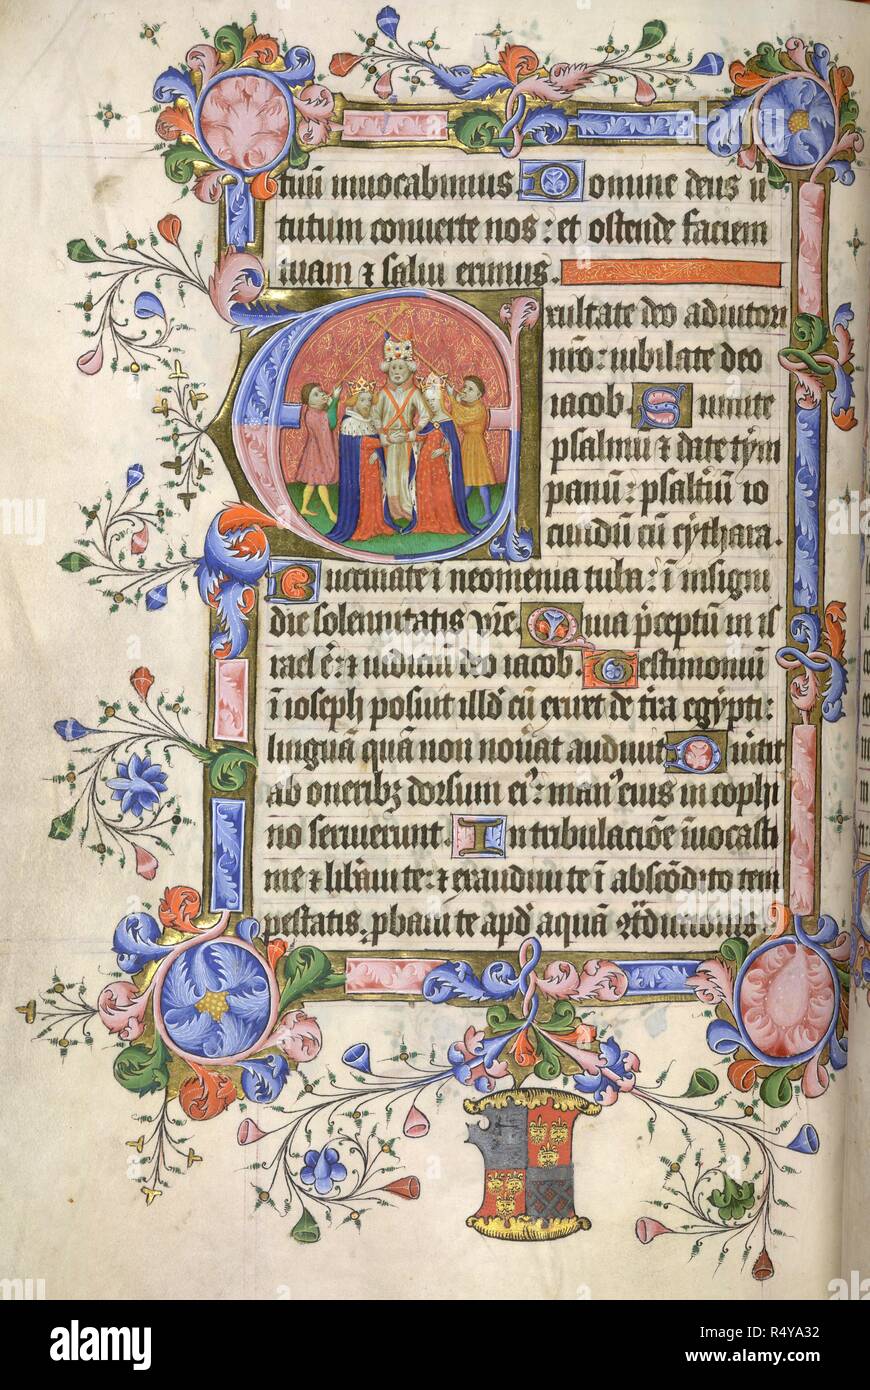 tuũ inuocabimus. Domine deus uir
tutum conuerte nos: et ostende faciem
tuam ⁊ salui erimus.
Exultate deo adiutori
nr̃o: iubilate deo
iacob. Sumite
psalmũ ⁊ date tỹm
panũ: psaltiũ io
cũdũ cũ cythara.
Buccinate ĩ neomenia tuba: ĩ insigni
die solennitatis vr̃e. Quia p̃ceptũ in is
rael ẽ: ⁊ iudiciũ deo iacob. Testimoniũ
ĩ ioseph posuit illd̕ cũ exiret de tr̃a egypti:
linguã quã non nouerat audiuit. Diuertit
ab oneribꝫ dorsum eiꝰ: manꝰ eius in cophi
no seruierunt. In tribulaciõe ĩuocasti
me ⁊ liberaui te: ⁊ exaudiui te ĩ abscõdito tem
pestatis, probaui te apd̕ aquã cõtradictionis.
alamy
Image ID: R4YA32
www.alamy.com